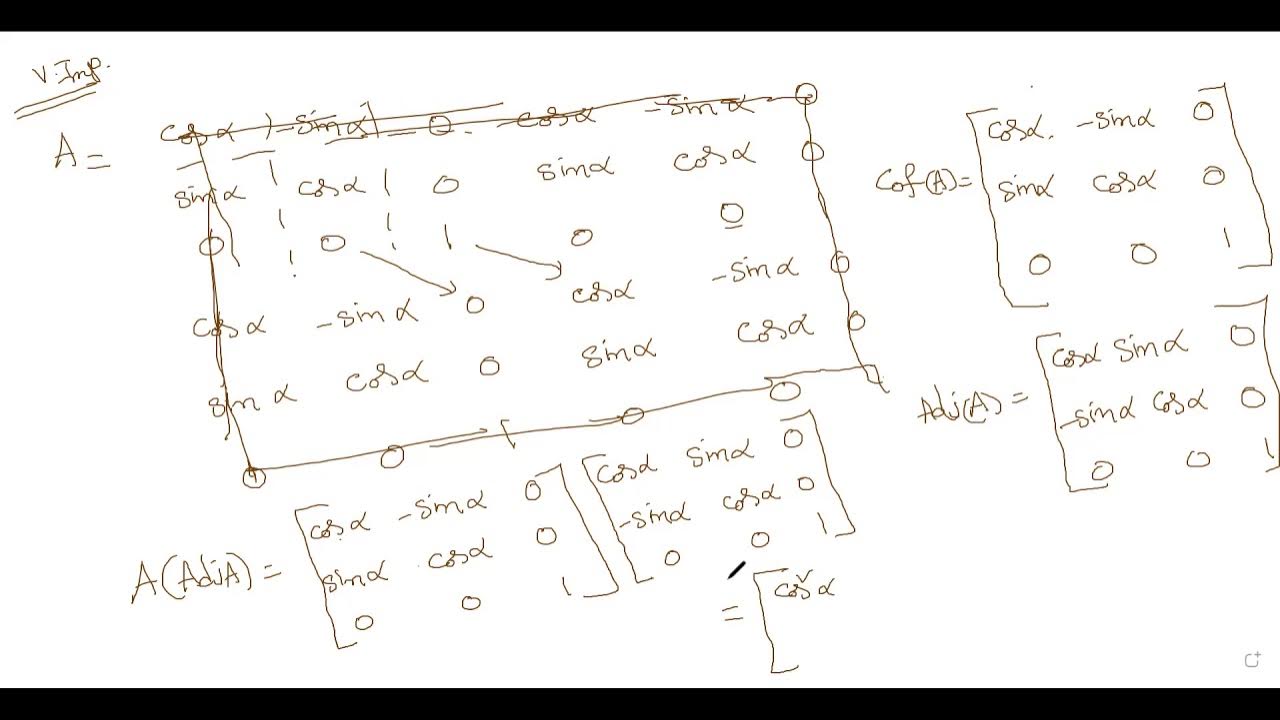 V. Imp.
A =
cosα -sinα 0 cosα -sinα 0
sinα cosα 0 sinα cosα 0
0 0 1 0 0
cosα -sinα 0 cosα -sinα 0
sinα cosα 0 sinα cosα 0
0 0 1 0 0
Cof(A) =
cosα. -sinα 0
sinα cosα 0
0 0 1
Adj(A) =
cosα sinα 0
-sinα cosα 0
0 0 1
A(AdjA) =
cosα -sinα 0
sinα cosα 0
0 0 1
cosα sinα 0
-sinα cosα 0
0 0 1
= [cos²α